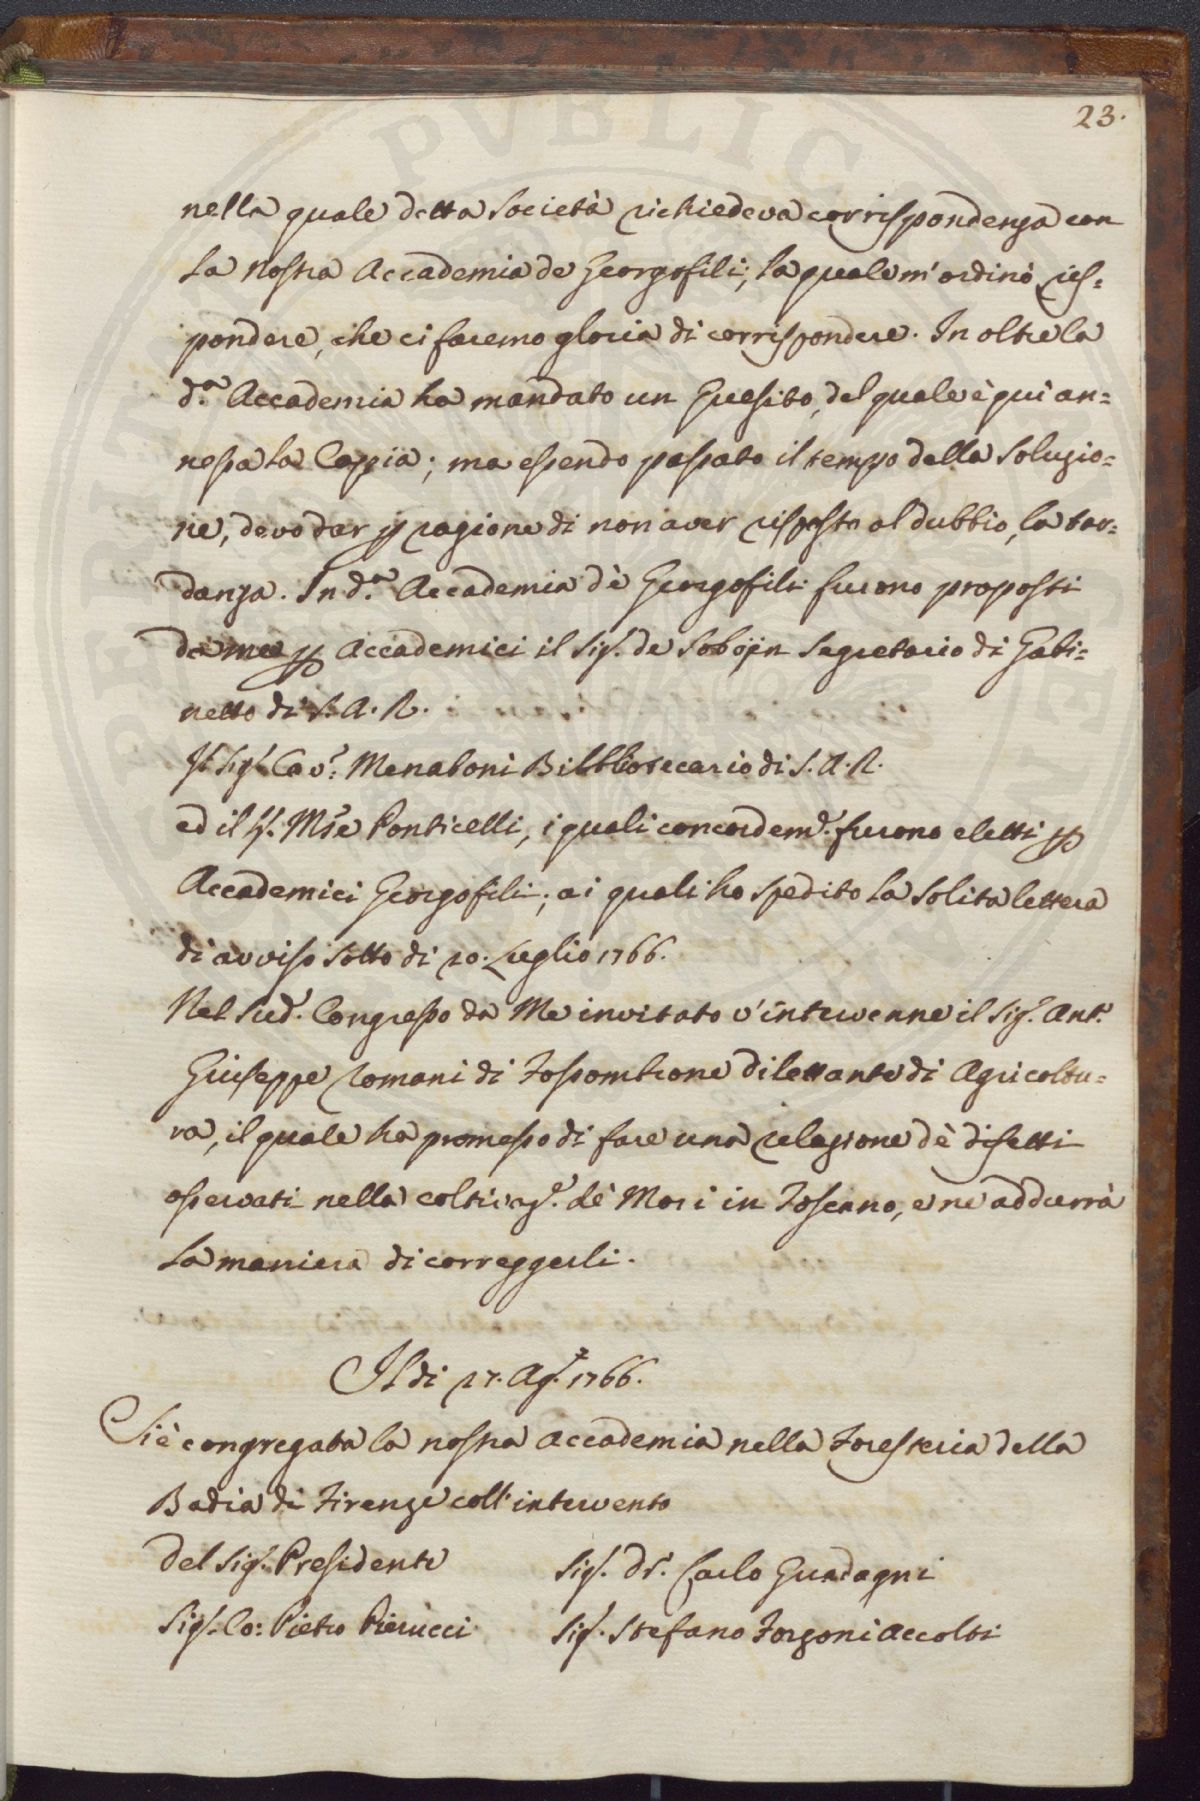 23.
nella quale detta Società richiedeva corrispondenza con
la nostra Accademia de Georgofili; la quale m'ordinò ris=
pondere, che ci faremo gloria di corrispondere. In oltre la
d.a Accademia ha mandato un Quesito, del quale è qui an=
nessa la Coppia; ma essendo passato il tempo della soluzio=
ne, devo dar p ragione di non aver risposto al dubbio, la tar=
danza. In d.a Accademia dè Georgofili furono proposti
da me p Accademici il Sig. de Segretario di Gabi=
netto di S. A. R.
Il Sig. Cav.r Menaboni Bibbliotecario di S. A. R.
ed il S. Mse Ponticelli, i quali concordem.e furono eletti p
Accademici Georgofili; ai quali ho spedito la solita lettera
di avviso sotto di 20. Luglio 1766.
Nel sud.o Congresso da Me invitato v'intervenne il Sig. Ant.
Giuseppe Romani di dilettante di Agricoltu=
ra, il quale ha promesso di fare una relazione dè difetti
osservati nella coltivaz.e dè Mori in Toscana, e ne addurrà
la maniera di correggerli.
Il di 27. Ag. 1766.
Si è congregata la nostra Accademia nella Foresteria della
Badia di Firenze coll'intervento
del Sig. Presidente
Sig. Dr. Carlo Guadagni
Sig. Co: Pietro Pierucci
Sig. Stefano Forzoni Accolti
PVBLIC